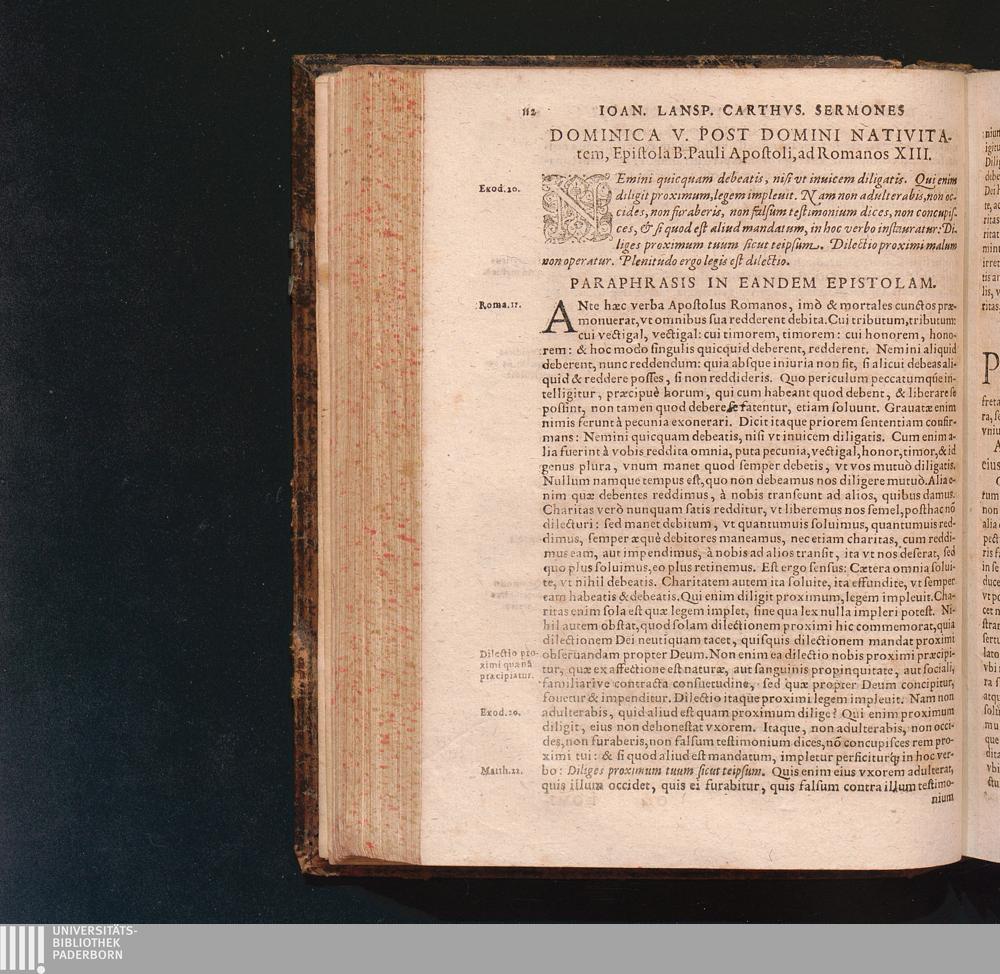 112 IOAN. LANSP. CARTHVS. SERMONES
DOMINICA V. POST DOMINI NATIVITA-
tem, Epiſtola B. Pauli Apoſtoli, ad Romanos XIII.
Exod. 20.
NEmini quicquam debeatis, niſi vt inuicem diligatis. Qui enim
diligit proximum, legem impleuit. Nam non adulterabis, non oc-
cides, non furaberis, non falſum teſtimonium dices, non concupiſ-
ces, & ſi quod eſt aliud mandatum, in hoc verbo inſtauratur: Di-
liges proximum tuum ſicut teipſum. Dilectio proximi malum
non operatur. Plenitudo ergo legis eſt dilectio.
PARAPHRASIS IN EANDEM EPISTOLAM.
Roma. 11.
ANte hæc verba Apoſtolus Romanos, imò & mortales cunctos præ-
monuerat, vt omnibus ſua redderent debita. Cui tributum, tributum:
cui vectigal, vectigal: cui timorem, timorem: cui honorem, hono-
rem: & hoc modo ſingulis quicquid deberent, redderent. Nemini aliquid
deberent, nunc reddendum: quia abſque iniuria non fit, ſi alicui debeas ali-
quid & reddere poſſes, ſi non reddideris. Quo periculum peccatumq́ue in-
telligitur, præcipuè horum, qui cum habeant quod debent, & liberare ſe
poſſint, non tamen quod debere ſe fatentur, etiam ſoluunt. Grauatæ enim
nimis ferunt à pecunia exonerari. Dicit itaque priorem ſententiam confir-
mans: Nemini quicquam debeatis, niſi vt inuicem diligatis. Cum enim a-
lia fuerint à vobis reddita omnia, puta pecunia, vectigal, honor, timor, & id
genus plura, vnum manet quod ſemper debetis, vt vos mutuò diligatis.
Nullum namque tempus eſt, quo non debeamus nos diligere mutuò. Alia e-
nim quæ debentes reddimus, à nobis tranſeunt ad alios, quibus damus.
Charitas verò nunquam ſatis redditur, vt liberemus nos ſemel, poſthac nō
dilecturi: ſed manet debitum, vt quantumuis ſoluimus, quantumuis red-
dimus, ſemper æquè debitores maneamus, nec etiam charitas, cum reddi-
mus eam, aut impendimus, à nobis ad alios tranſit, ita vt nos deſerat, ſed
quo plus ſoluimus, eo plus retinemus. Eſt ergo ſenſus: Cætera omnia ſolui-
te, vt nihil debeatis. Charitatem autem ita ſoluite, ita effundite, vt ſemper
eam habeatis & debeatis. Qui enim diligit proximum, legem impleuit. Cha-
ritas enim ſola eſt quæ legem implet, ſine qua lex nulla impleri poteſt. Ni-
hil autem obſtat, quod ſolam dilectionem proximi hic commemorat, quia
dilectionem Dei neutiquam tacet, quiſquis dilectionem mandat proximi
Dilectio pro-
ximi quænā
præcipiatur.
obſeruandam propter Deum. Non enim ea dilectio nobis proximi præcipi-
tur, quæ ex affectione eſt naturæ, aut ſanguinis propinquitate, aut ſociali,
familiariue contracta conſuetudine, ſed quæ propter Deum concipitur,
fouetur & impenditur. Dilectio itaque proximi legem impleuit. Nam non
Exod. 20.
adulterabis, quid aliud eſt quam proximum dilige? Qui enim proximum
diligit, eius non dehoneſtat vxorem. Itaque, non adulterabis, non occi-
des, non furaberis, non falſum teſtimonium dices, nō concupiſces rem pro-
ximi tui: & ſi quod aliud eſt mandatum, impletur perficiturq́; in hoc ver-
Matth. 22.
bo: Diliges proximum tuum ſicut teipſum. Quis enim eius vxorem adulterat,
quis illum occidet, quis ei furabitur, quis falſum contra illum teſtimo-
nium
UNIVERSITÄTS-
BIBLIOTHEK
PADERBORN